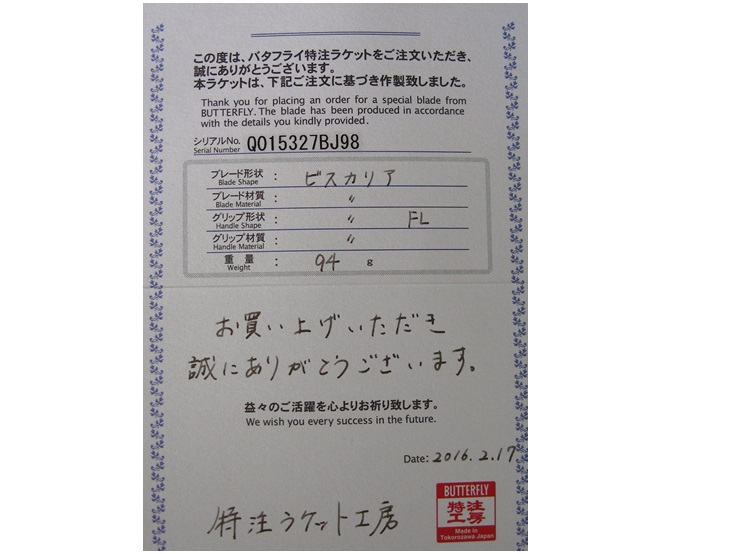 この度は、バタフライ特注ラケットをご注文いただき、
誠にありがとうございます。
本ラケットは、下記ご注文に基づき作製致しました。
Thank you for placing an order for a special blade from
BUTTERFLY. The blade has been produced in accordance
with the details you kindly provided.
シリアルNo. Q015327BJ98
Serial Number
ブレード形状 : ビスカリア
Blade Shape
ブレード材質 : 〃
Blade Material
グリップ形状 : 〃 FL
Handle Shape
グリップ材質 : 〃
Handle Material
重量 : 94 g
Weight
お買い上げいただき
誠にありがとうございます。
益々のご活躍を心よりお祈り致します。
We wish you every success in the future.
Date: 2016.2.17
特注ラケット工房
BUTTERFLY
特注
工房
Made in
Tokorozawa Japan